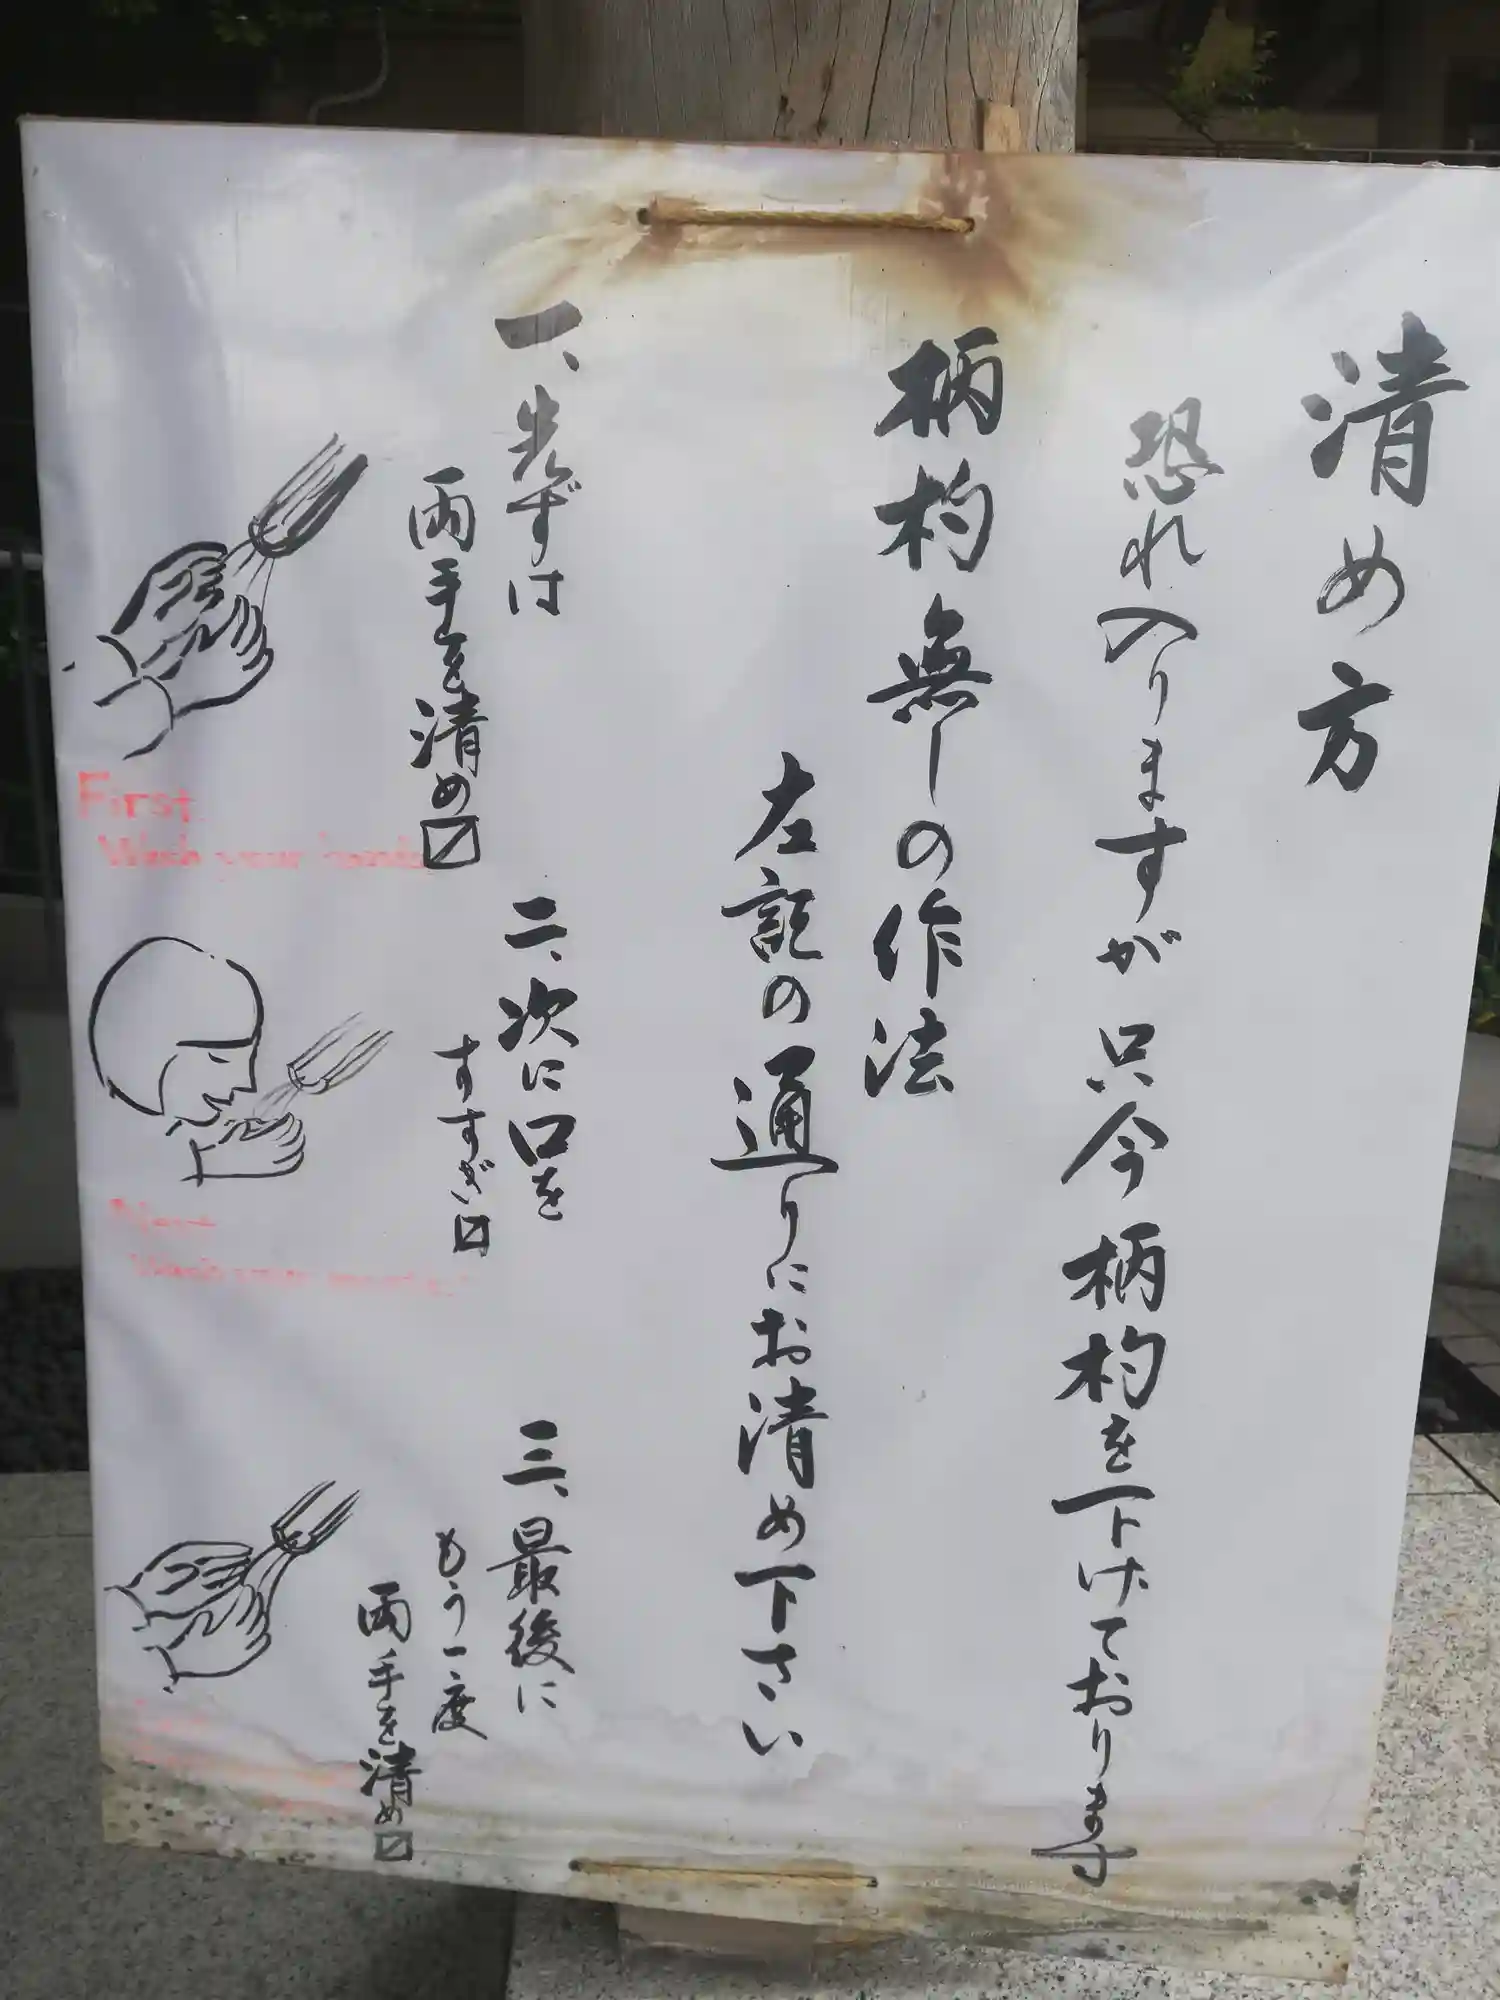 清め方
恐れ入りますが只今柄杓を下げております
柄杓無しの作法
左記の通りにお清め下さい
一、先ずは
両手を清め〼
二、次に口を
すすぎ〼
三、最後に
もう一度
両手を清め〼
First
Wash your hands
Next
Wash your